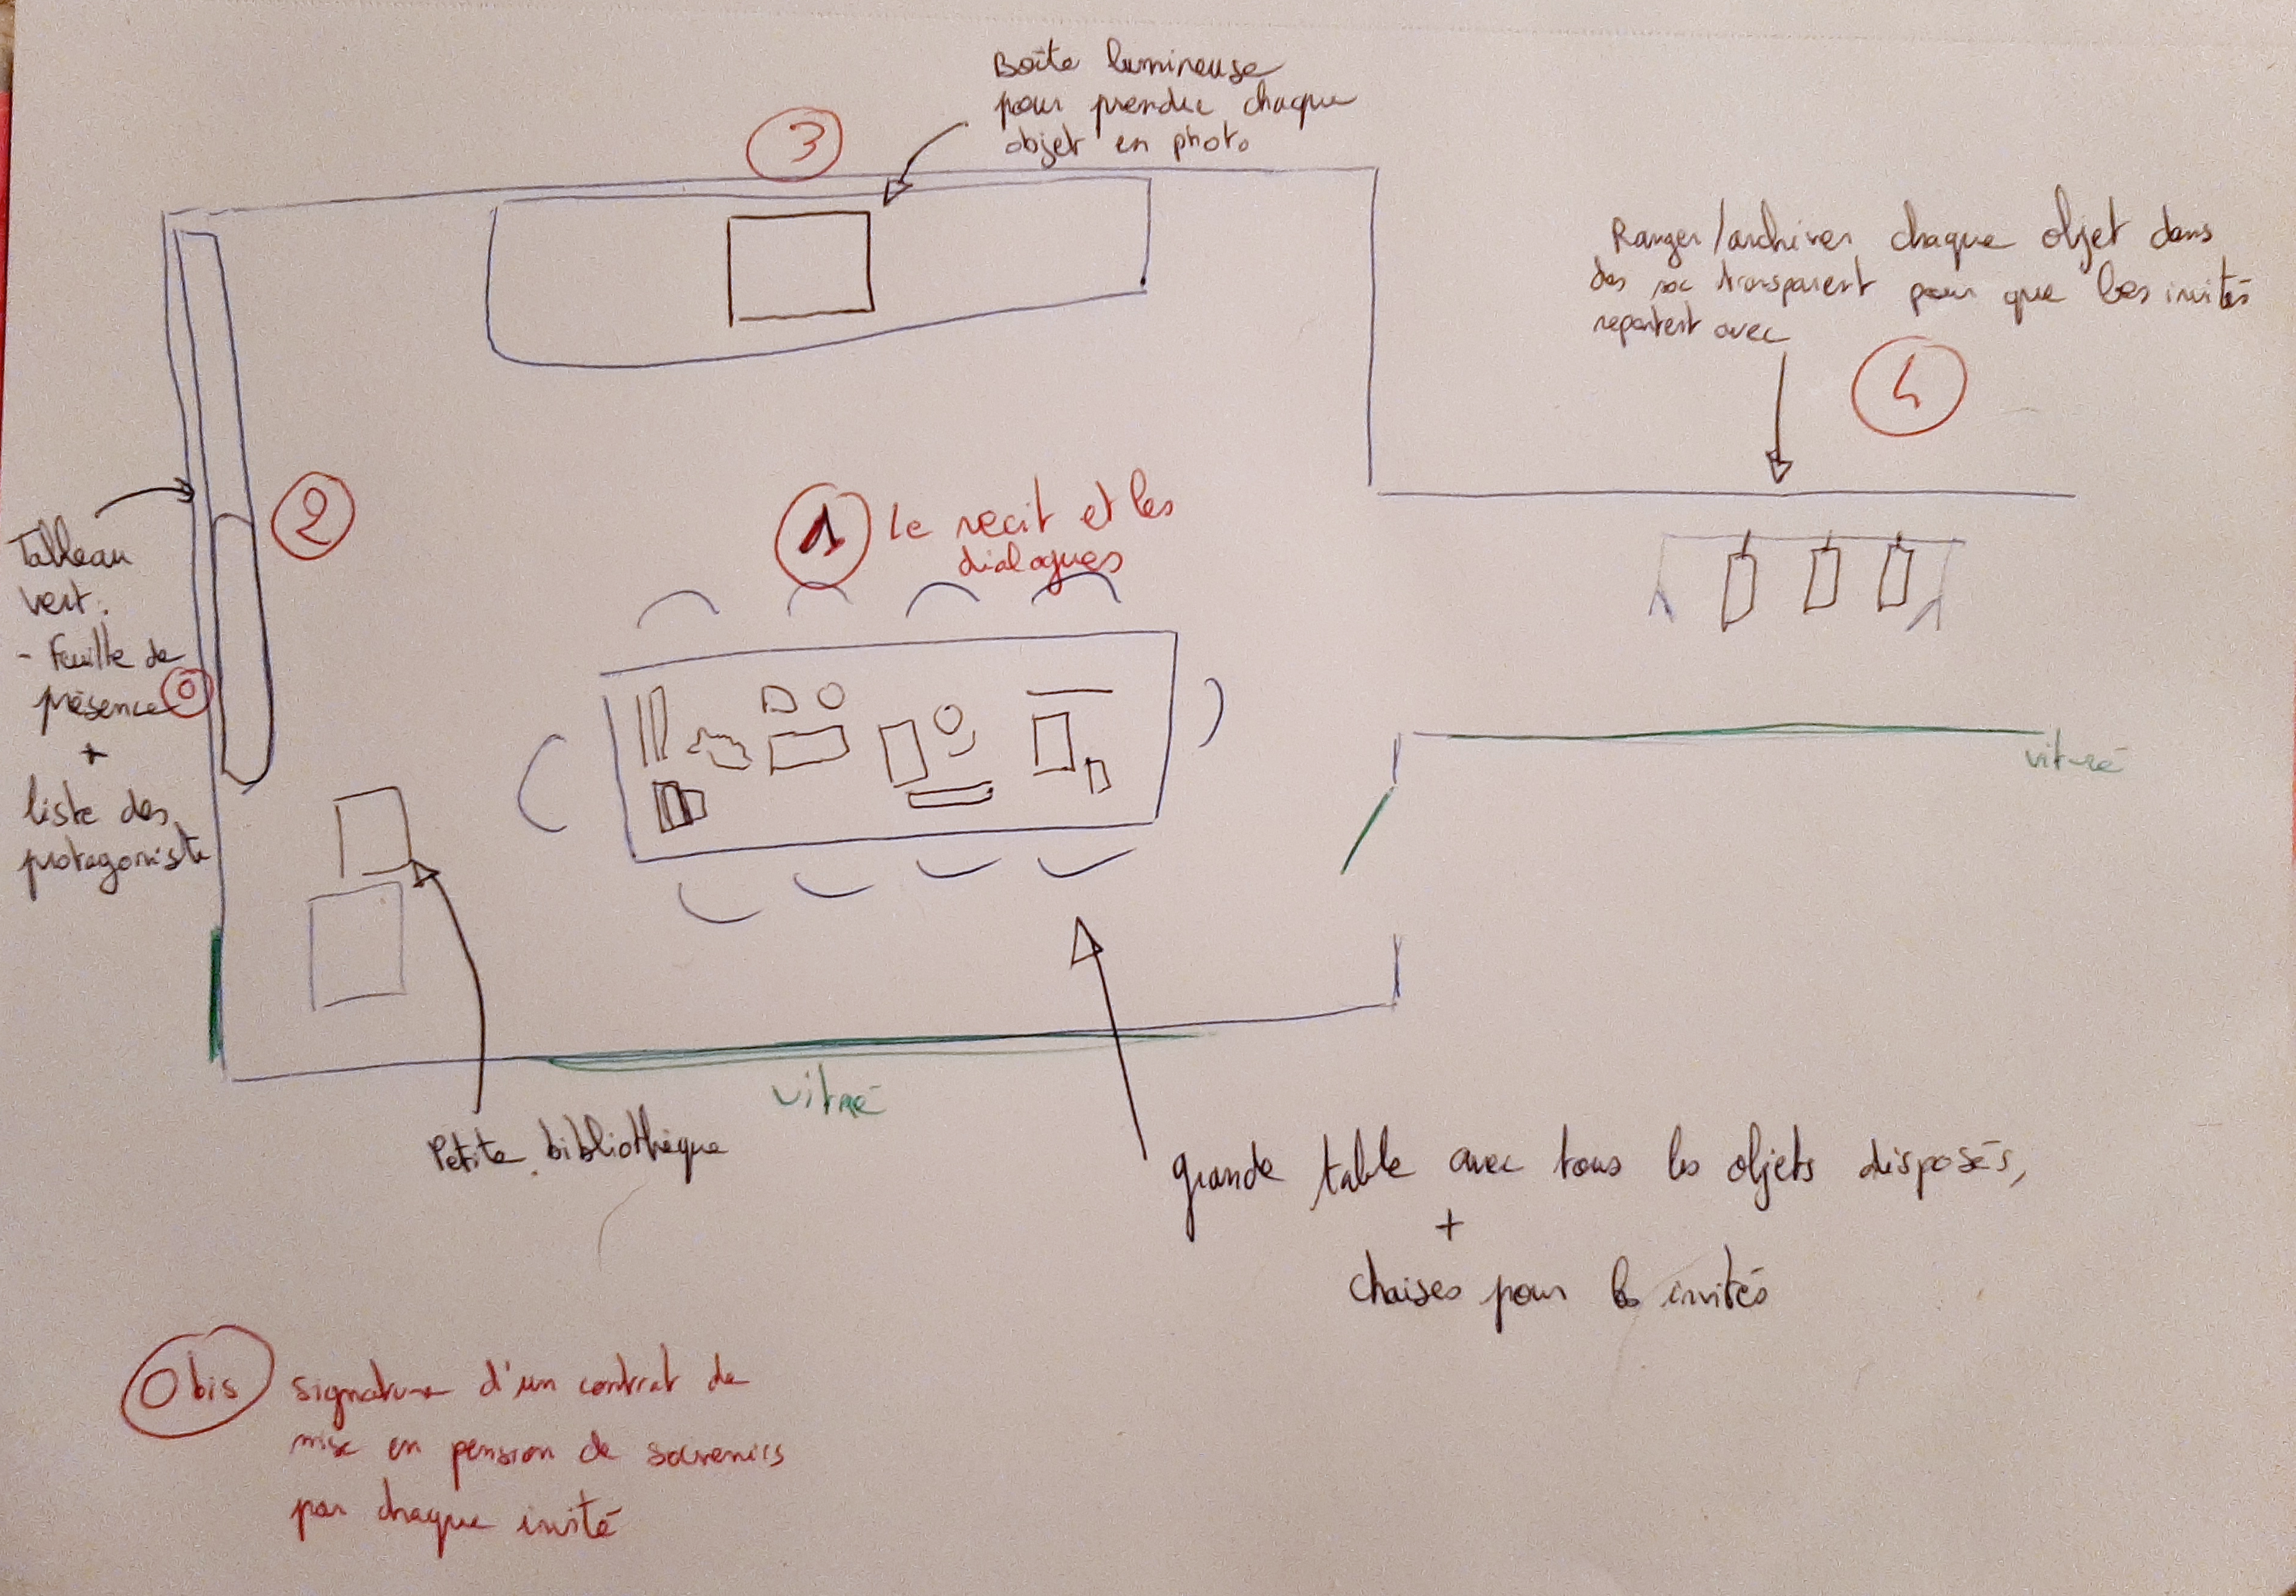 Boîte lumineuse
pour prendre chaque
objet en photo
3
Ranger/archiver chaque objet dans
des sac transparent pour que les invités
repartent avec
4
2
1 Le récit et les
dialogues
Tableau
vert:
- Feuille de
présence 0
+
liste des
protagoniste
vitré
vitré
Petite bibliothèque
grande table avec tous les objets disposés,
+
chaises pour les invités
0 bis signature d'un contrat de
mise en pension de souvenirs
par chaque invité